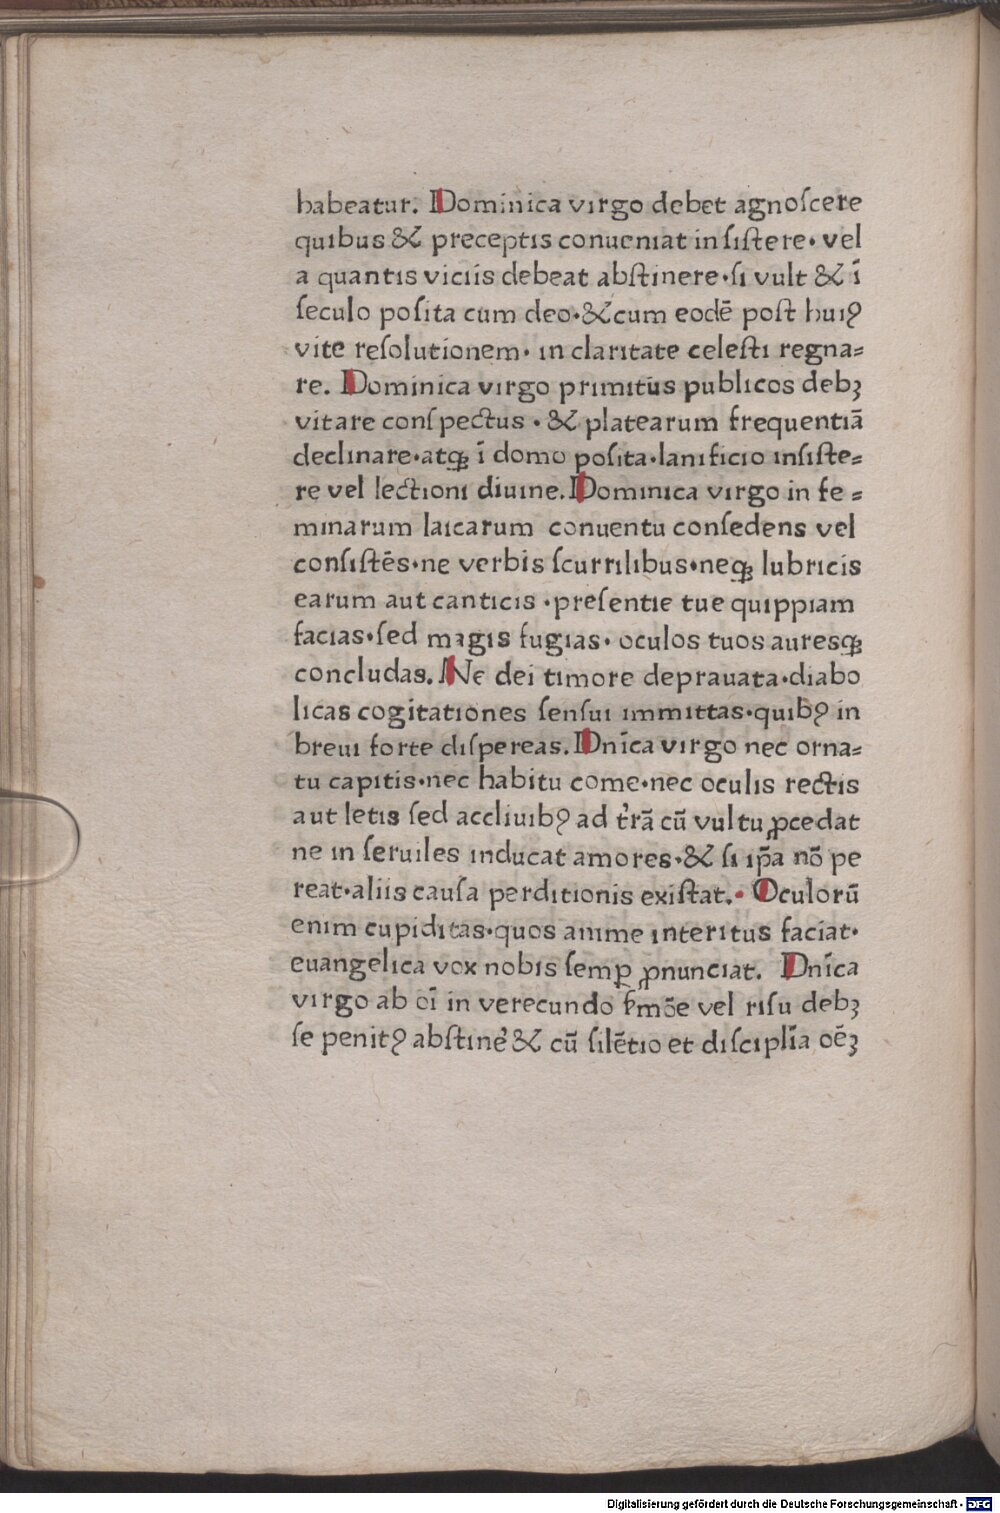 habeatur. Dominica virgo debet agnoſcere
quibus & preceptis conueniat inſiſtere· vel
a quantis viciis debeat abſtinere·ſi vult & ī
ſeculo poſita cum deo·&cum eodē poſt huiꝰ
vite reſolutionem· in claritate celeſti regna⸗
re. Dominica virgo primitus publicos debꝫ
vitare conſpectus · & platearum frequentiā
declinare·atqꝫ ī domo poſita·lanificio inſiſte⸗
re vel lectioni diuine. Dominica virgo in fe⸗
minarum laicarum conuentu conſedens vel
conſiſtēs·ne verbis ſcurrilibus·neqꝫ lubricis
earum aut canticis ·preſentie tue quippiam
facias·ſed magis fugias· oculos tuos aureſqꝫ
concludas. Ne dei timore deprauata·diabo
licas cogitationes ſenſui immittas·quibꝰ in
breui forte diſpereas. Dnīca virgo nec orna⸗
tu capitis·nec habitu come·nec oculis rectis
aut letis ſed accliuibꝰ ad t̓rā cū vultu ꝓcedat
ne in ſeruiles inducat amores·& ſi ip̄a nō pe
reat·aliis cauſa perditionis exiſtat.· Oculorū
enim cupiditas·quos anime interitus faciat·
euangelica vox nobis ſemꝑ ꝓnunciat. Dnīca
virgo ab oī in verecundo ſ̓mōe vel riſu debꝫ
ſe penitꝰ abſtine̓ & cū ſilētio et diſciplīa oēꝫ
Digitalisierung gefördert durch die Deutsche Forschungsgemeinschaft - DFG